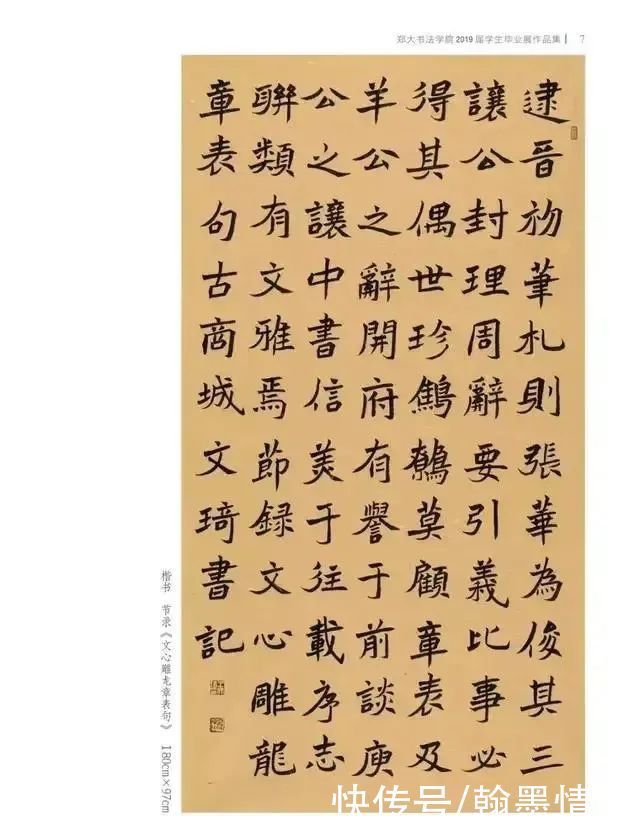 郑大书法学院2019届学生毕业展作品集 | 7
逮晉初筆札則張華為俊其三
讓公封理周辭要引義比事必
得其偶世珍鷦鷯莫顧章表及
羊公之辭開府有譽于前談庾
公之讓中書信美于往載序志
聨類有文雅焉節録文心雕龍
章表句古商城文琦書記
楷书 节录《文心雕龙章表句》 180cm×97cm
快传号/翰墨情